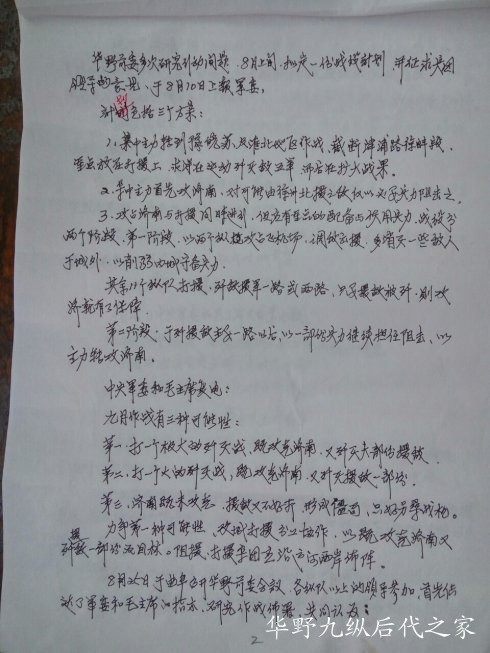 华野前委多次研究行动问题，8月上旬，拟定一份战役计划，并征求兵团
领导的意见，于8月10日上报军委。
计划包括三个方案：
1、集中主力转到豫皖苏及淮北地区作战，截断津浦路徐蚌段，
重点放在打援上，求得在运动中歼灭敌五军，而后在扩大战果。
2、集中主力首先攻济南，对可能由徐州北援之敌仅以必要兵力阻击之。
3、攻占济南与打援同时进行，但应有重点的配备与使用兵力，战役分
两个阶段，第一阶段，以两个纵抢攻占飞机场，调敌来援，多消灭一些敌人
于城外，以削弱内城守备兵力。
其余11个纵队打援，歼敌援军一路或两路，只要援敌被歼，则攻
济就有了保障。
第二阶段：于歼援敌主要一路以后，以一部份兵力继续担任阻击，以
主力转攻济南。
中央军委和毛主席复电：
九月作战有三种可能性：
第一、打一个极大的歼灭战，既攻克济南，又歼灭大部份援敌。
第二、打一个大的歼灭战，既攻克济南，又歼灭援敌一部份。
第三、济南既未攻克，援敌又不好打，形成僵局，只好另寻战机。
力争第一种可能性，攻城打援分工协作，以既攻克济南又
歼援敌一部份为目标。阻援、打援集团应沿运河两岸布阵。
8月25日于曲阜召开华野前委会议，各纵队以上的领导参加，首先传
达了军委和毛主席的指示，研究作战部署，共同认为：
2
华野九纵后代之家